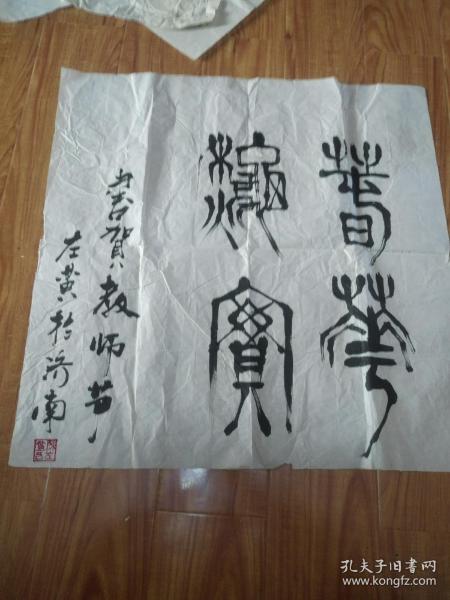 春华
秋实
喜贺教师节
左黄于济南
孔夫子旧书网
www.kongfz.com